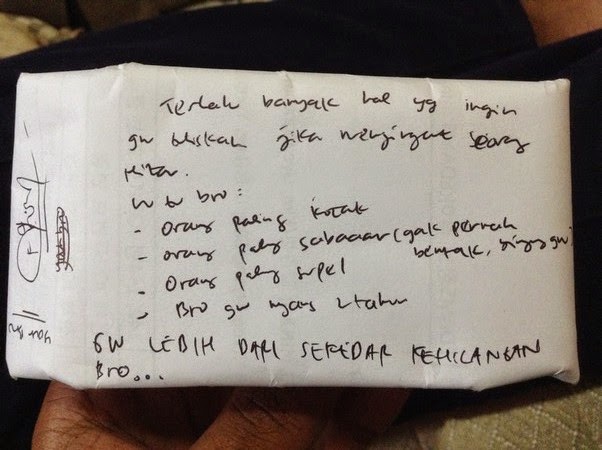 Terlalu banyak hal yg ingin
gw tuliskan jika mengingat seorang
Mita.
W tu bro:
- Orang paling kotak
- orang paling sabaaar (gak pernah
bentak, bingung gw.
- Orang paling supel
- Bro gw nyaris 2 tahun
GW LEBIH DARI SEKEDAR KEHILANGAN
Bro...